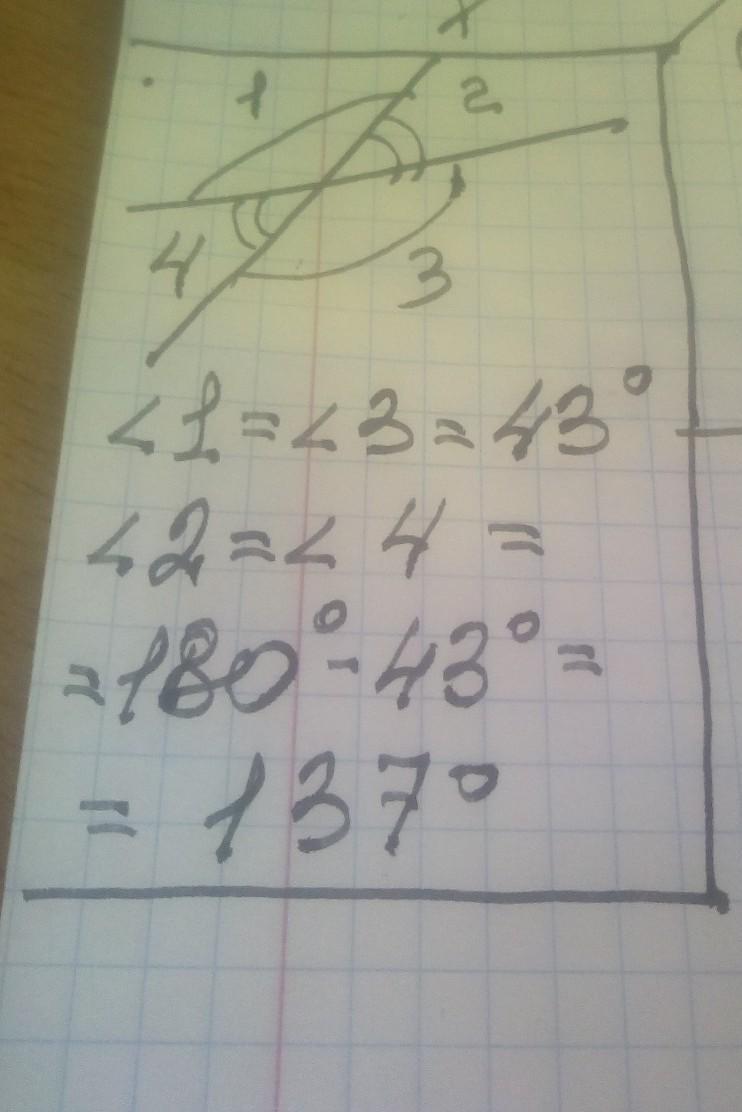 1 2
4 3
<1=<3=43°
<2=< 4 =
=180°-43°=
= 137°